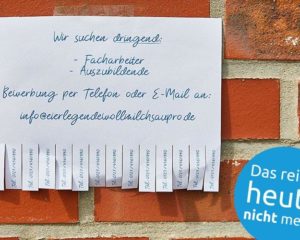 Wir suchen dringend:
- Facharbeiter
- Auszubildende
Bewerbung per Telefon oder E-Mail an:
info@eierlegendewollmilchsaupro.de
Das rei
heut
nicht me